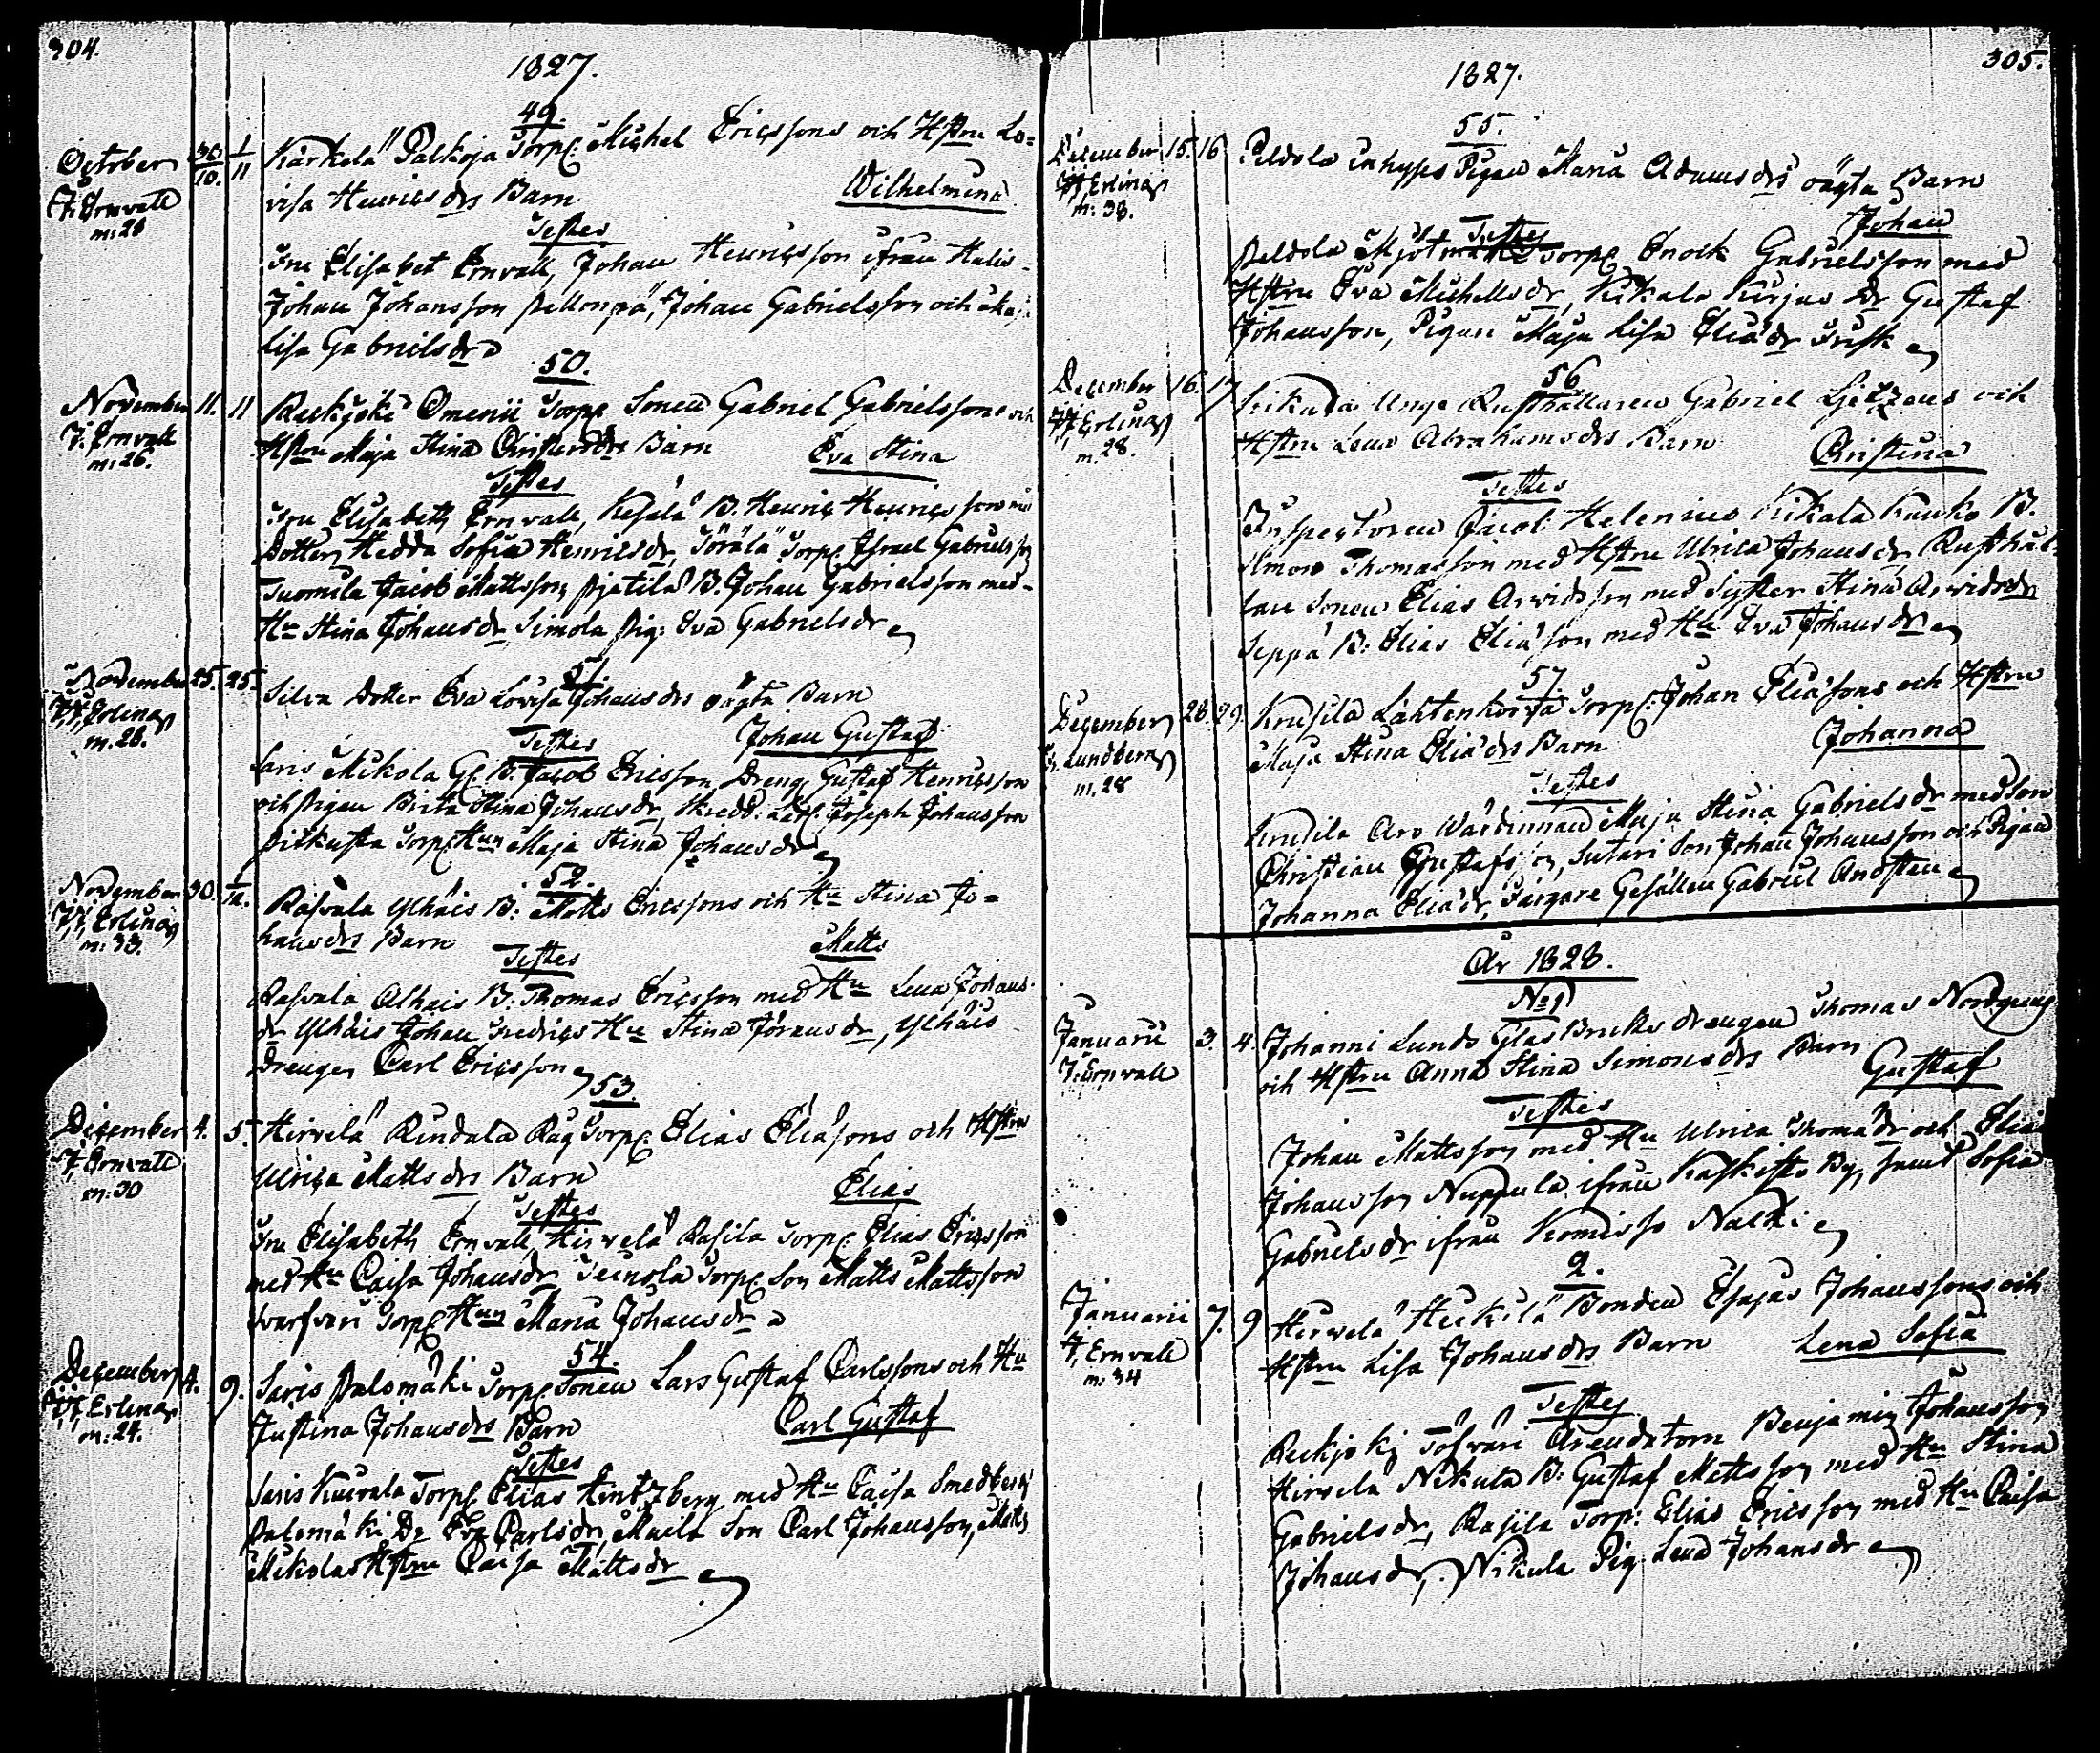 304.
1827.
49.
October 30/10. 1/11 Kärkelä Palkoja Torp. Michel Ericssons och Hstru Lo=
J. Ernvall
m: 28
visa Henricsdrs Barn Wilhelmina
Testes
Fru Elisabet Ernvall, Johan Henricsson ifrån
Johan Johansson Johan Gabrielsson och
Lisa Gabrielsdr
50.
November 11. 11 Torp. Sonen Gabriel Gabrielssons och
J. Ernvall
m: 26.
Hstru Maja Stina Barn Eva Stina
Testes
Fru Elisabeth Ernvall, Kesälä B. Henric Henricsson
Dotter Hedda Sofia Henricsdr, Torp. Israel Gabrielss
Tuomila Jacob Mattsson, B. Johan Gabrielsson med
Hu Stina Johansdr Simola Pig: Eva Gabrielsdr
51.
November 25. 25. Silva Dotter Eva Lovisa Johansdrs oägta Barn
Erling
m. 28.
Testes Johan Gustaf
Saris Mikola B. Jacob Ericsson Dreng Gustaf Henricsson
och Pigan Brita Stina Johansdr, Joseph Johansson
Torp Hun Maja Stina Johansdr
52.
November 30. 1/12. Rasvala Ylhäis B: Matts Ericssons och Hu Stina Jo=
Erling
m: 33.
hansdrs Barn Matts
Testes
Rasvala Alhais B: Thomas Ericsson med Hu Lena Johans
dr Ylhäis Johan Fredrics Hu Stina Göransdr, Ylhäis
Drengen Carl Ericsson
53.
December 4. 5. Hirvelä Torp. Elias Eliæsons och Hstru
J. Ernvall
m: 30
Ulrica Mattsdrs Barn Elias
Testes
Fru Elisabeth Ernvall, Hirvelä Rasila Torp. Elias Ericsson
med Hu Caisa Johansdr Torp. Son Matts Mattsson
Torp Hun Maria Johansdr
54.
December 4. 9. Saris Palomäki Torp. Sonen Lars Gustaf Carlssons och Hu
Erling
m: 24.
Justina Johansdrs Barn Carl Gustaf
Testes
Saris Torp. Elias med Hu Caisa Smedberg
Palomäki Eva Carlsdr, Son Carl Johansson,
Mikolas Hstru Caisa Mattsdr
305.
1827.
55.
December 15. 16 Peldola inhyses Pigan Maria Adamsdrs oägta Barn
Erling
m: 38.
Johan
Testes
Peldola Torp. Enock Gabrielsson med
Hstru Eva Michelsdr, Kikala Dr Gustaf
Johansson, Pigan Maja Lisa Eliædr Frisk
56
December 16. 17 Kikala Unge Rusthållaren Gabriel och
Erling
m. 28.
Hstru Lena Abrahamsdrs Barn Christina
Testes
Inspectoren Jacob Helenius Kikala Kauko B.
Simon Thomasson med Hstru Ulrica Johansdr Rusthål=
lare Sonen Elias Arvidsson med Syster Stina Arvidsdr
Seppä B: Elias Eliæson med Hu Eva Johansdr
57
December 28. 29. Krusila Torp: Johan Eliæsons och Hstru
Lundberg
m. 28
Maja Stina Eliædrs Barn Johanna
Testes
Krusila Aro Wärdinnan Maja Stina Gabrielsdr med Son
Christian Gustafsson, Sutari Son Johan Johansson och Pigan
Johanna Eliædr, Färgare Gesällen Gabriel Andsten
År 1828.
No 1
Januarii 3. 4. Johanni Lunds Glas Bruks drengen Thomas
J. Ernvall
och Hstru Anna Stina Simonsdrs Barn Gustaf
Testes
Johan Mattsson med Hu Ulrica Thomædr och Elias
Johansson Nuppula ifrån By, samt Sofia
Gabrielsdr ifrån
2.
Januarii 7. 9 Hirvelä Heikilä Bonden Esajas Johanssons och
J. Ernvall
m: 34
Hstru Lisa Johansdrs Barn Lena Sofia
Testes
Arendatorn Benjamin Johansson
Hirvelä Nikula B: Gustaf Mattsson med Hu Stina
Gabrielsdr, Rasila Torp: Elias Ericsson med Hu Caisa
Johansdr, Nikula Pig: Lena Johansdr